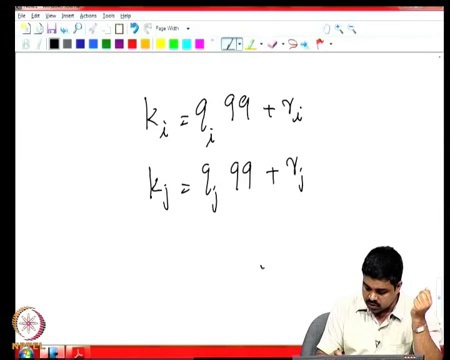 File Edit View Insert Actions Tools Help
Page Width
B
k_i = q_i 99 + r_i
k_j = q_j 99 + r_j
NPTEL